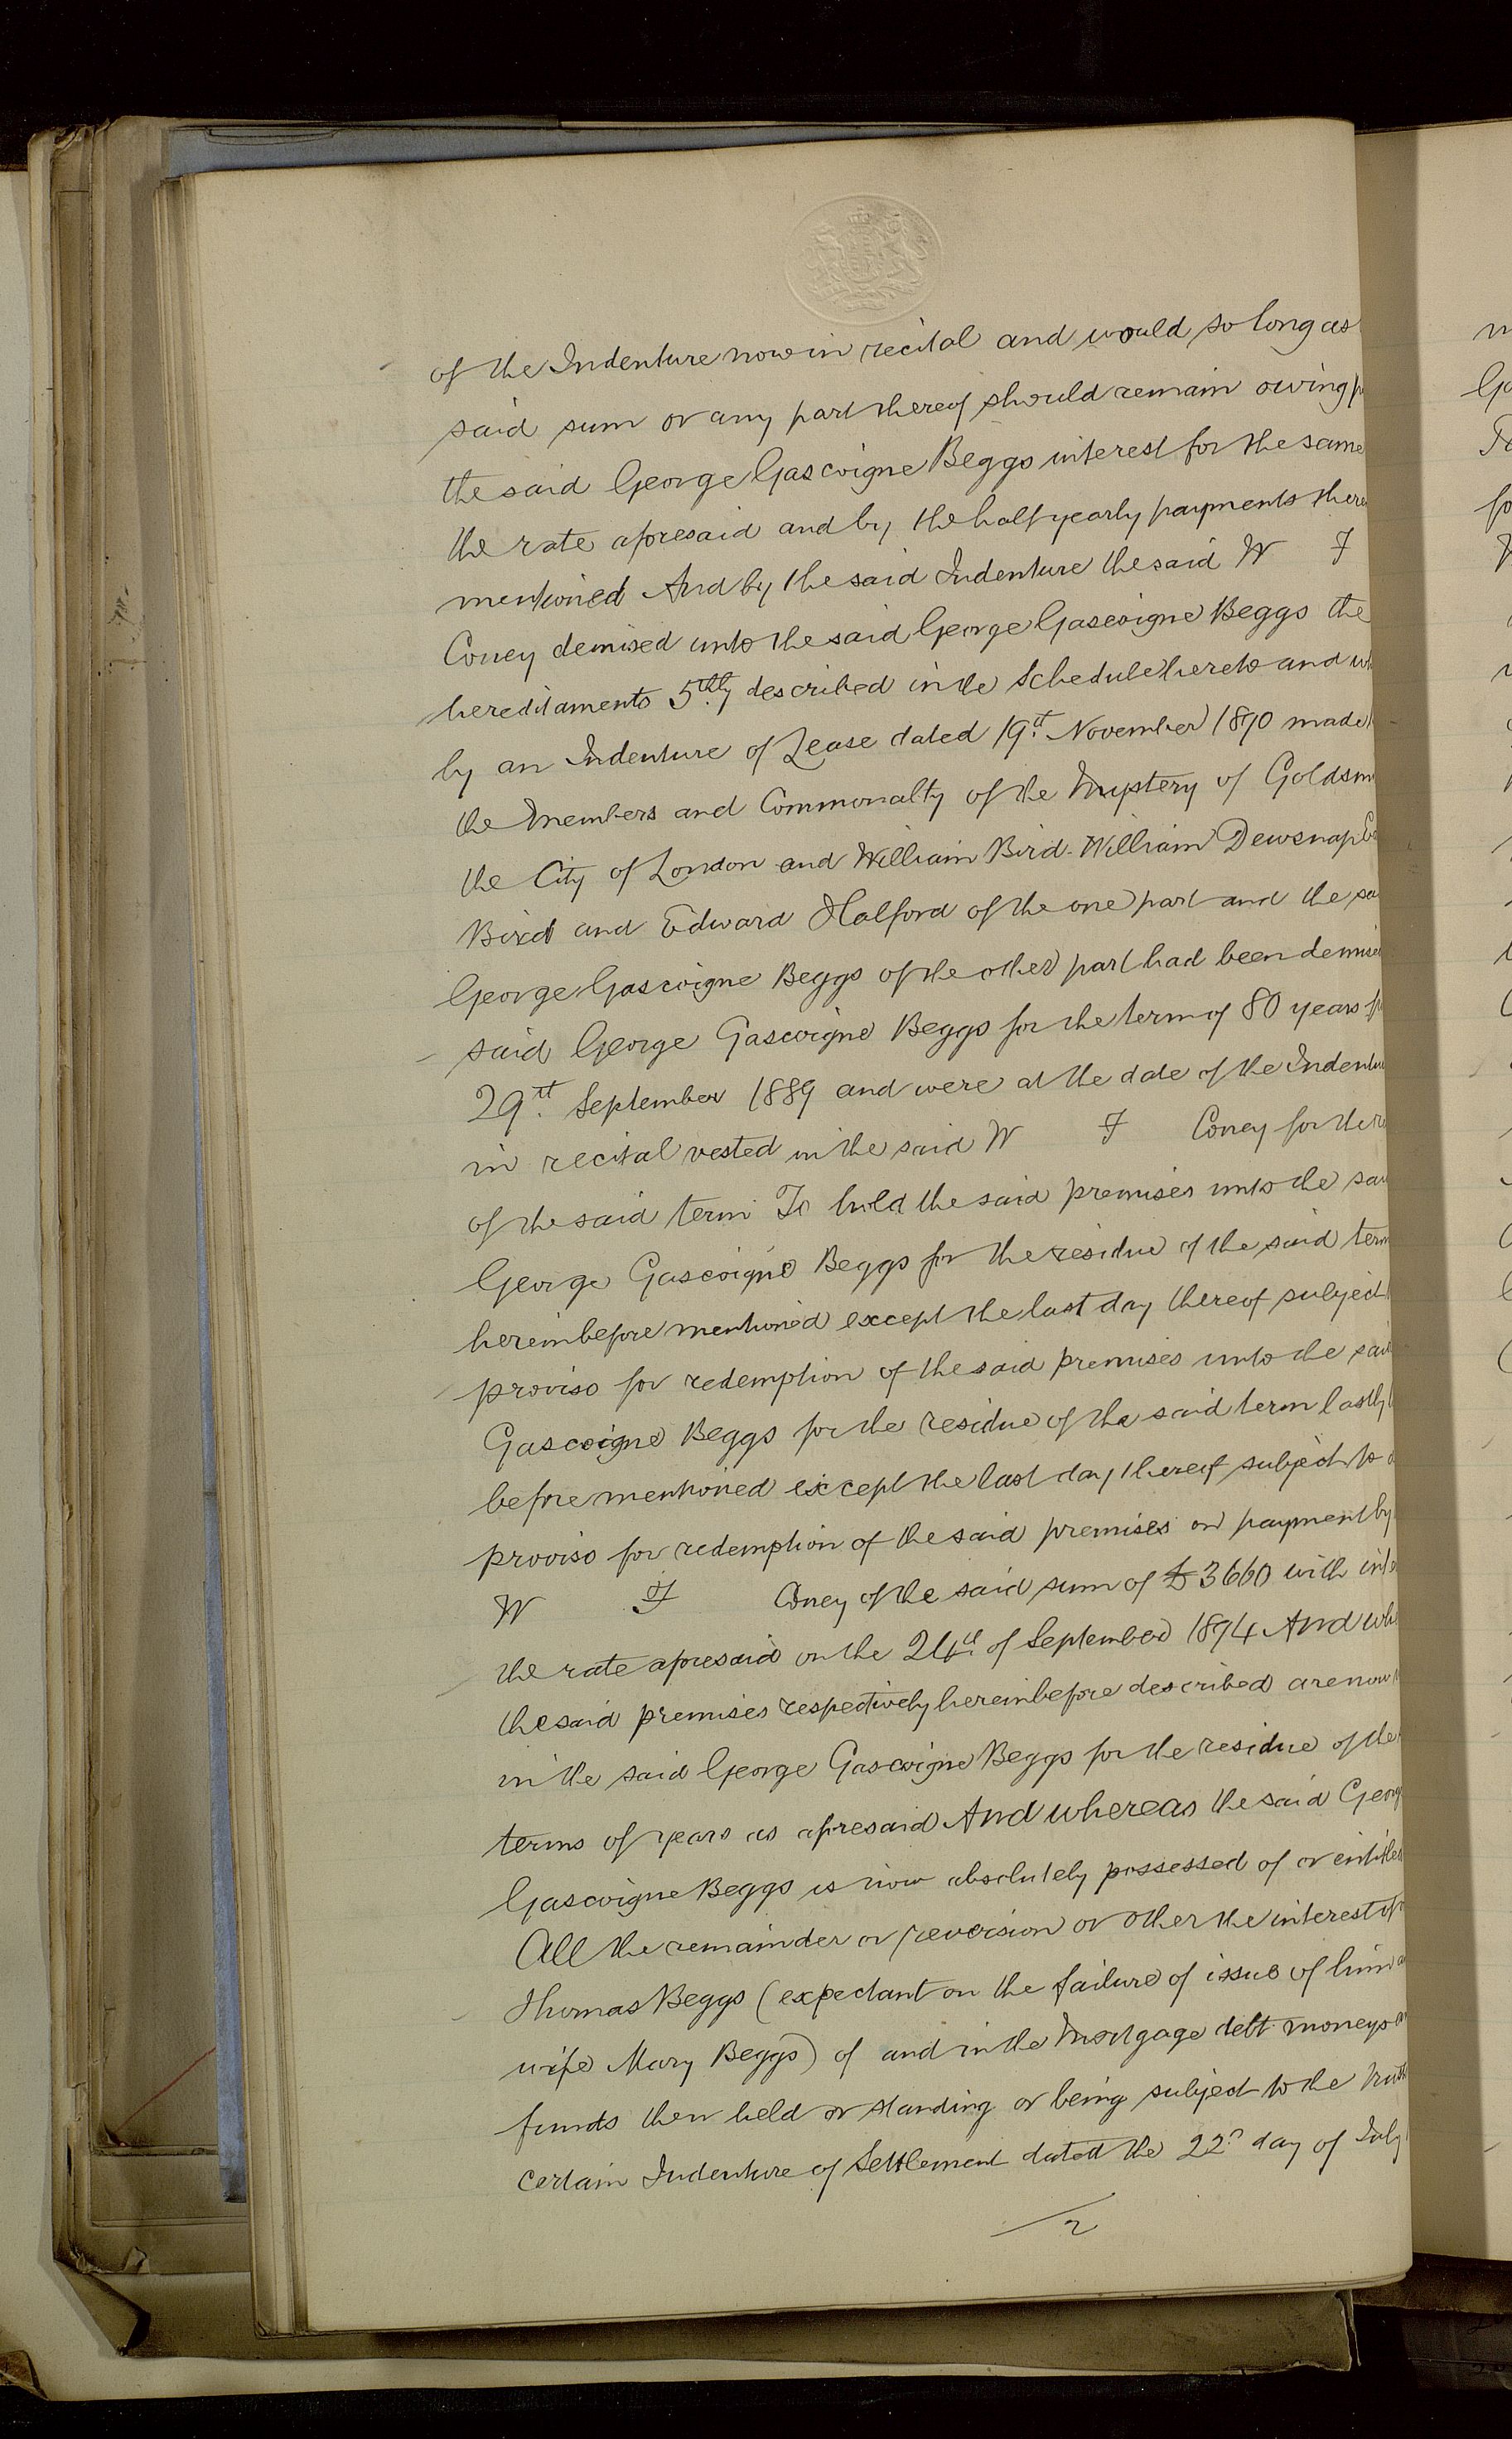 of the Indenture now in recital and would so long as
said sum or any part thereof should remain owing p
the said George Gascoigne Beggs interest for the same
the rate aforesaid and by the half yearly payments there
mentioned And by the said Indenture the said W F
Coney demised unto the said George Gascoigne Beggs the
hereditaments 5thly described in the Schedule hereto and wh
by an Indenture of Lease dated 19th November 1890 made
the Members and Commonalty of the Mystery of Goldsm
the City of London and William Bird William Dewsnap
Bird and Edward Halford of the one part and the sa
George Gascoigne Beggs of the other part had been demise
said George Gascoigne Beggs for the term of 80 years f
29th September 1889 and were at the date of the Indentu
in recital vested in the said W F Coney for the re
of the said term To hold the said premises unto the sai
George Gascoigne Beggs for the residue of the said term
hereinbefore mentioned except the last day thereof subject
proviso for redemption of the said premises unto the said
Gascoigne Beggs for the residue of the said term lastly
before mentioned except the last day thereof subject to a
proviso for redemption of the said premises on payment by
W F Coney of the said sum of £3660 with inte
the rate aforesaid on the 24th of September 1894 And whe
the said premises respectively hereinbefore described are now
in the said George Gascoigne Beggs for the residue of the
terms of years as aforesaid And whereas the said Georg
Gascoigne Beggs is now absolutely possessed of or entitled
All the remainder or reversion or other the interest of
Thomas Beggs (expectant on the failure of issue of him a
wife Mary Beggs) of and in the Mortgage debt moneys
funds then held or standing or being subject to the trust
certain Indenture of Settlement dated the 22d day of July